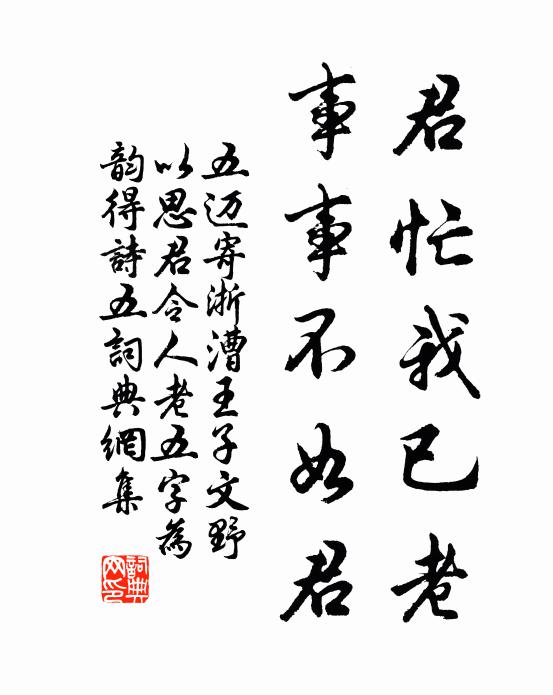 君忙我已老
事事不如君
五迈寄浙漕王子文野
以思君令人老五字為
韵得詩五詞典網集
詞典网印